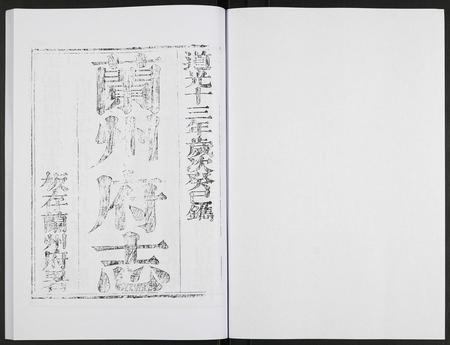 道光十三年歲次癸巳鐫
蘭州府志
板存蘭州府